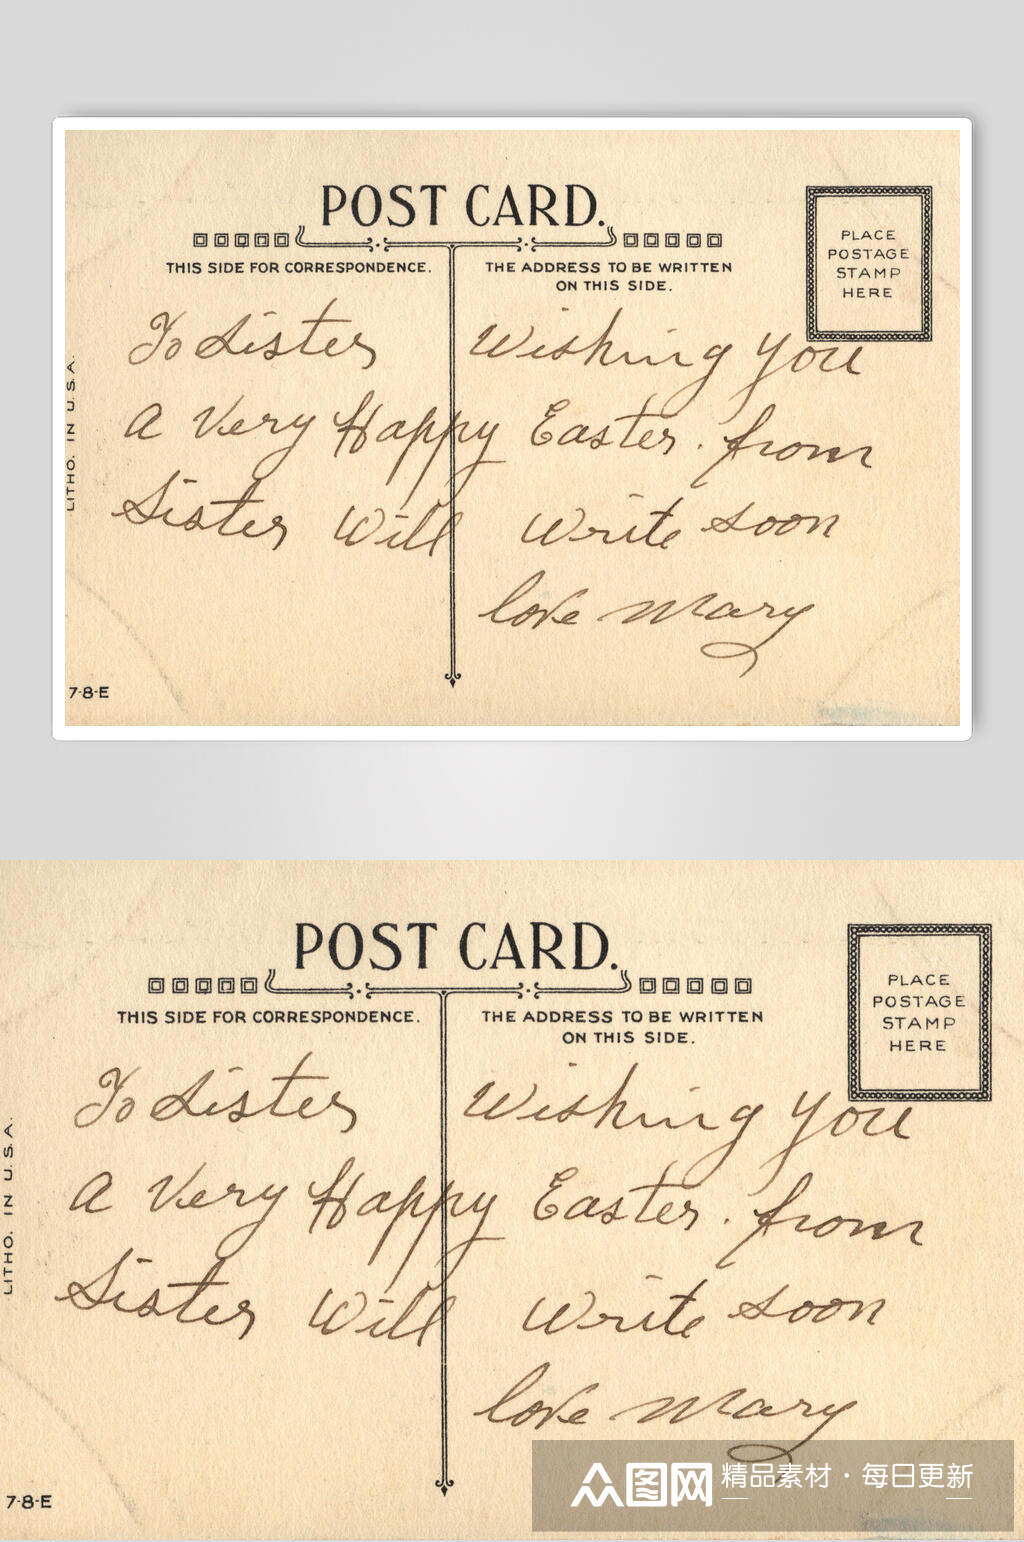 POST CARD.
THIS SIDE FOR CORRESPONDENCE.
THE ADDRESS TO BE WRITTEN
ON THIS SIDE.
PLACE
POSTAGE
STAMP
HERE
To Sister Wishing you
a Very Happy Easter. from
Sister Will Write soon
love Mary
LITHO. IN U.S.A.
7-8-E
POST CARD.
THIS SIDE FOR CORRESPONDENCE.
THE ADDRESS TO BE WRITTEN
ON THIS SIDE.
PLACE
POSTAGE
STAMP
HERE
To Sister Wishing you
a Very Happy Easter. from
Sister Will Write soon
love Mary
LITHO. IN U.S.A.
7-8-E
众图网 精品素材·每日更新